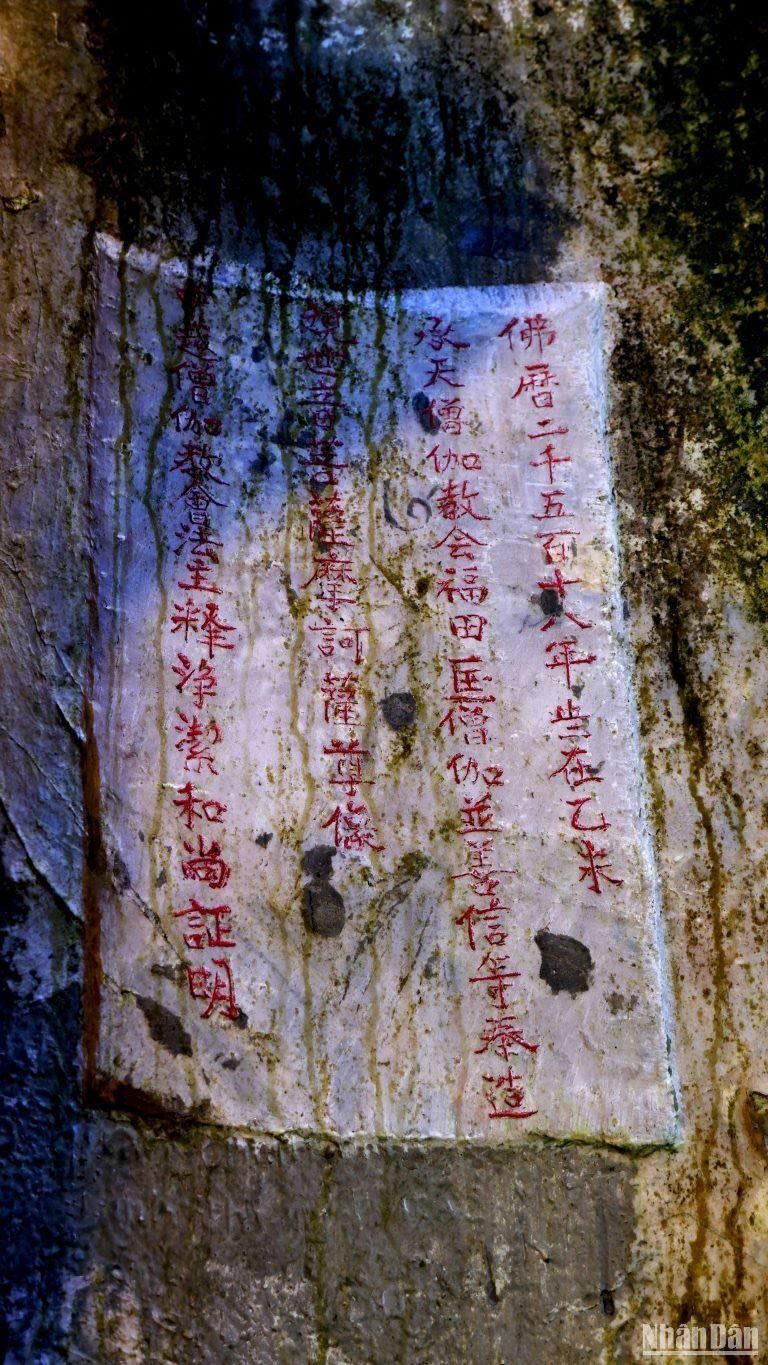 佛暦二千五百十八年岁在乙未
承天僧伽教会福田匡僧伽並善信等奉造
观世音菩薩摩訶薩尊像
中越僧伽教會法主释淨潔和尚証明
NhânDân